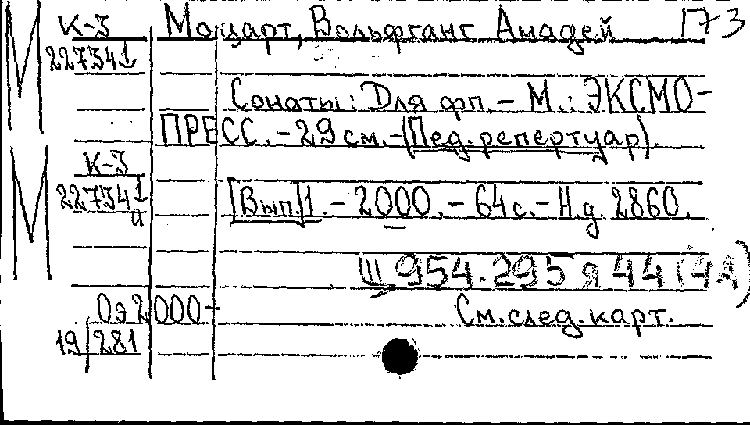 К-3 Моцарт, Вольфганг Амадей
227341
Сонаты: Для фп. – М.: ЭКСМО-
ПРЕСС. – 29 см. – (Пед. репертуар).
К-3
227341 [Вып.] 1. – 2000. – 64 с. – Н.д. 2860.
и
Ш 954.295 я 44 (4А)
2000- См. след. карт.
19 281
М
М